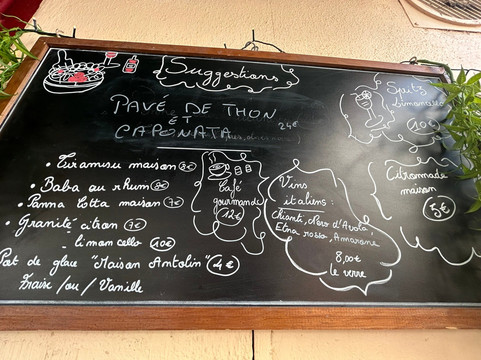 Suggestions
PAVÉ DE THON
ET
CAPONATA 24€
• Tiramisu maison 8€
• Baba au rhum 9€
• Panna Cotta maison 7€
• Granité citron 7€
- limoncello 10€
Pot de glace "Maison Antolin" 4€
Fraise / ou / Vanille
Café
gourmande
12€
Vins
italiens :
Chianti, Nero d'Avola,
Etna rosso, Amarone
8,00€
le verre
Spritz
10€
Citronnade
maison
5€